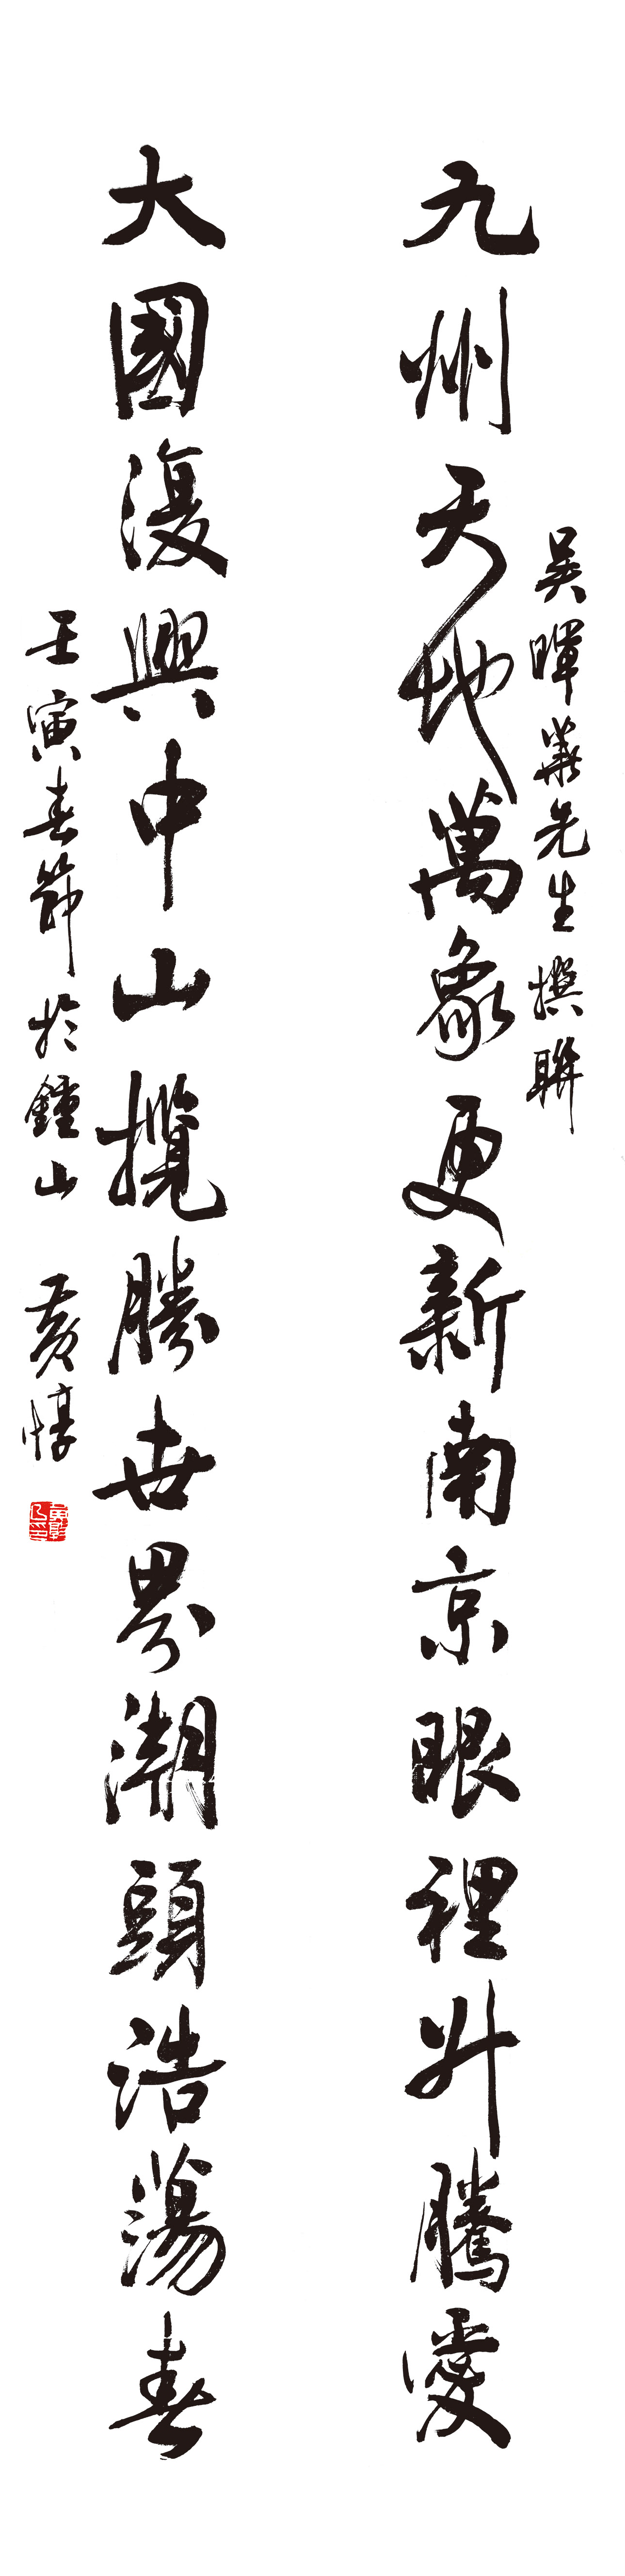 吴暉華先生撰聯
九州天地萬象更新南京眼裡升騰愛
大國復興中山攬勝世界潮頭浩蕩春
壬寅春節於鍾山 黄惇